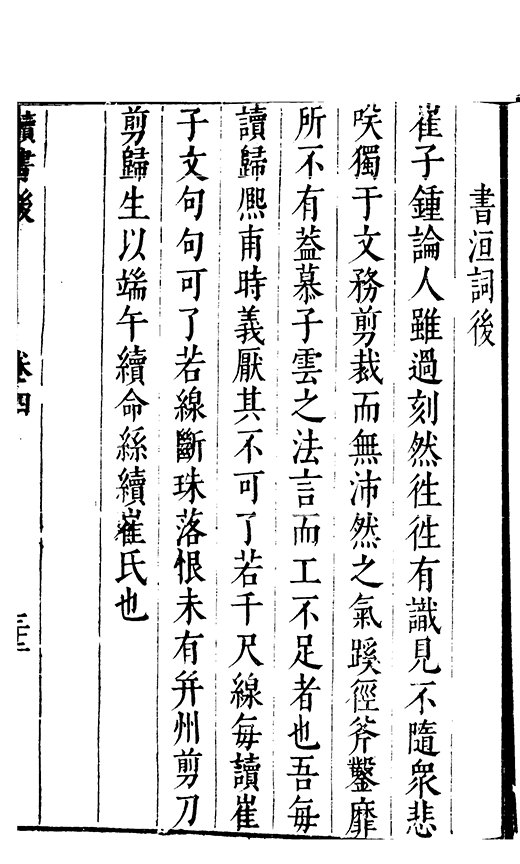 書洹詞後
崔子鍾論人雖過刻然徃徃有識見不隨衆悲
咲獨于文務剪裁而無沛然之氣蹊徑斧鑿靡
所不有葢慕子雲之法言而工不足者也吾每
讀歸熈甫時義厭其不可了若千尺線每讀崔
子文句句可了若線斷珠落恨未有并州剪刀
剪歸生以端午續命絲續崔氏也
讀書後
卷四
三十二